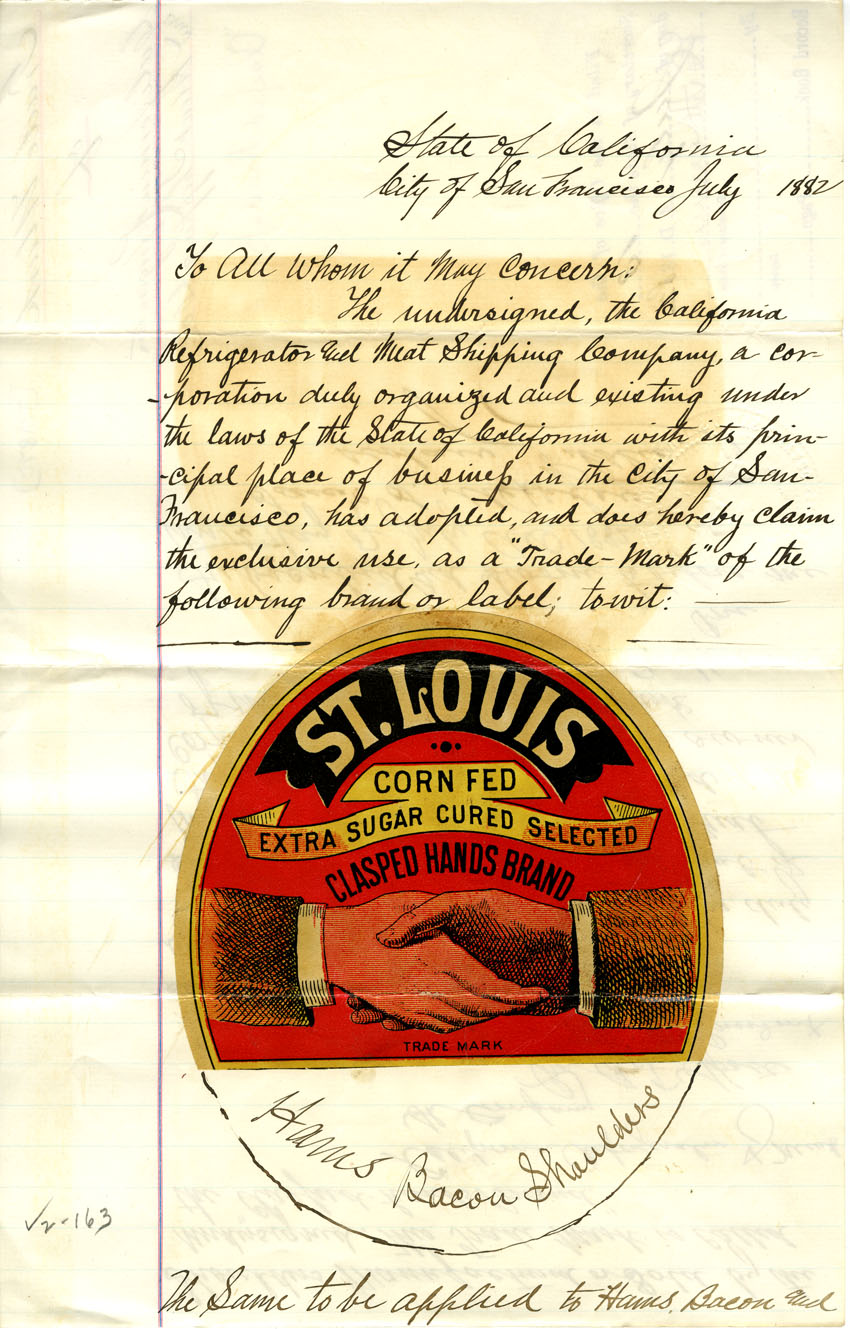 State of California
City of San Francisco July 1882
To All Whom it May Concern:
The undersigned, the California
Refrigerator and Meat Shipping Company, a cor-
-poration duly organized and existing under
the laws of the State of California with its prin-
-cipal place of business in the City of San-
Francisco, has adopted, and does hereby claim
the exclusive use, as a "Trade-Mark" of the
following brand or label; towit:
ST. LOUIS
CORN FED
EXTRA SUGAR CURED SELECTED
CLASPED HANDS BRAND
TRADE MARK
Hams Bacon Shoulders
√2-163
The Same to be applied to Hams, Bacon and